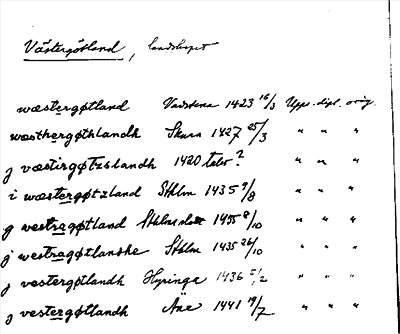 Västergötland, landskapet
wæstergøtland Vadstena 1423 16/3 Upps. dipl. orig.
wæsthergøthlandh Skara 1427 25/3 " " "
j væstirgøtzslandh 1420 talet? " " "
i wæstergøtzland Sthlm 1435 9/8 " " "
j westragøtland Sthlms slott 1435 8/10 " " "
j westragøtlanske Sthlm 1435 26/10 " " "
j vestergøtlandh Hyringa 1436 /2 " " "
j vestergøtlandh 1441 19/7 " " "